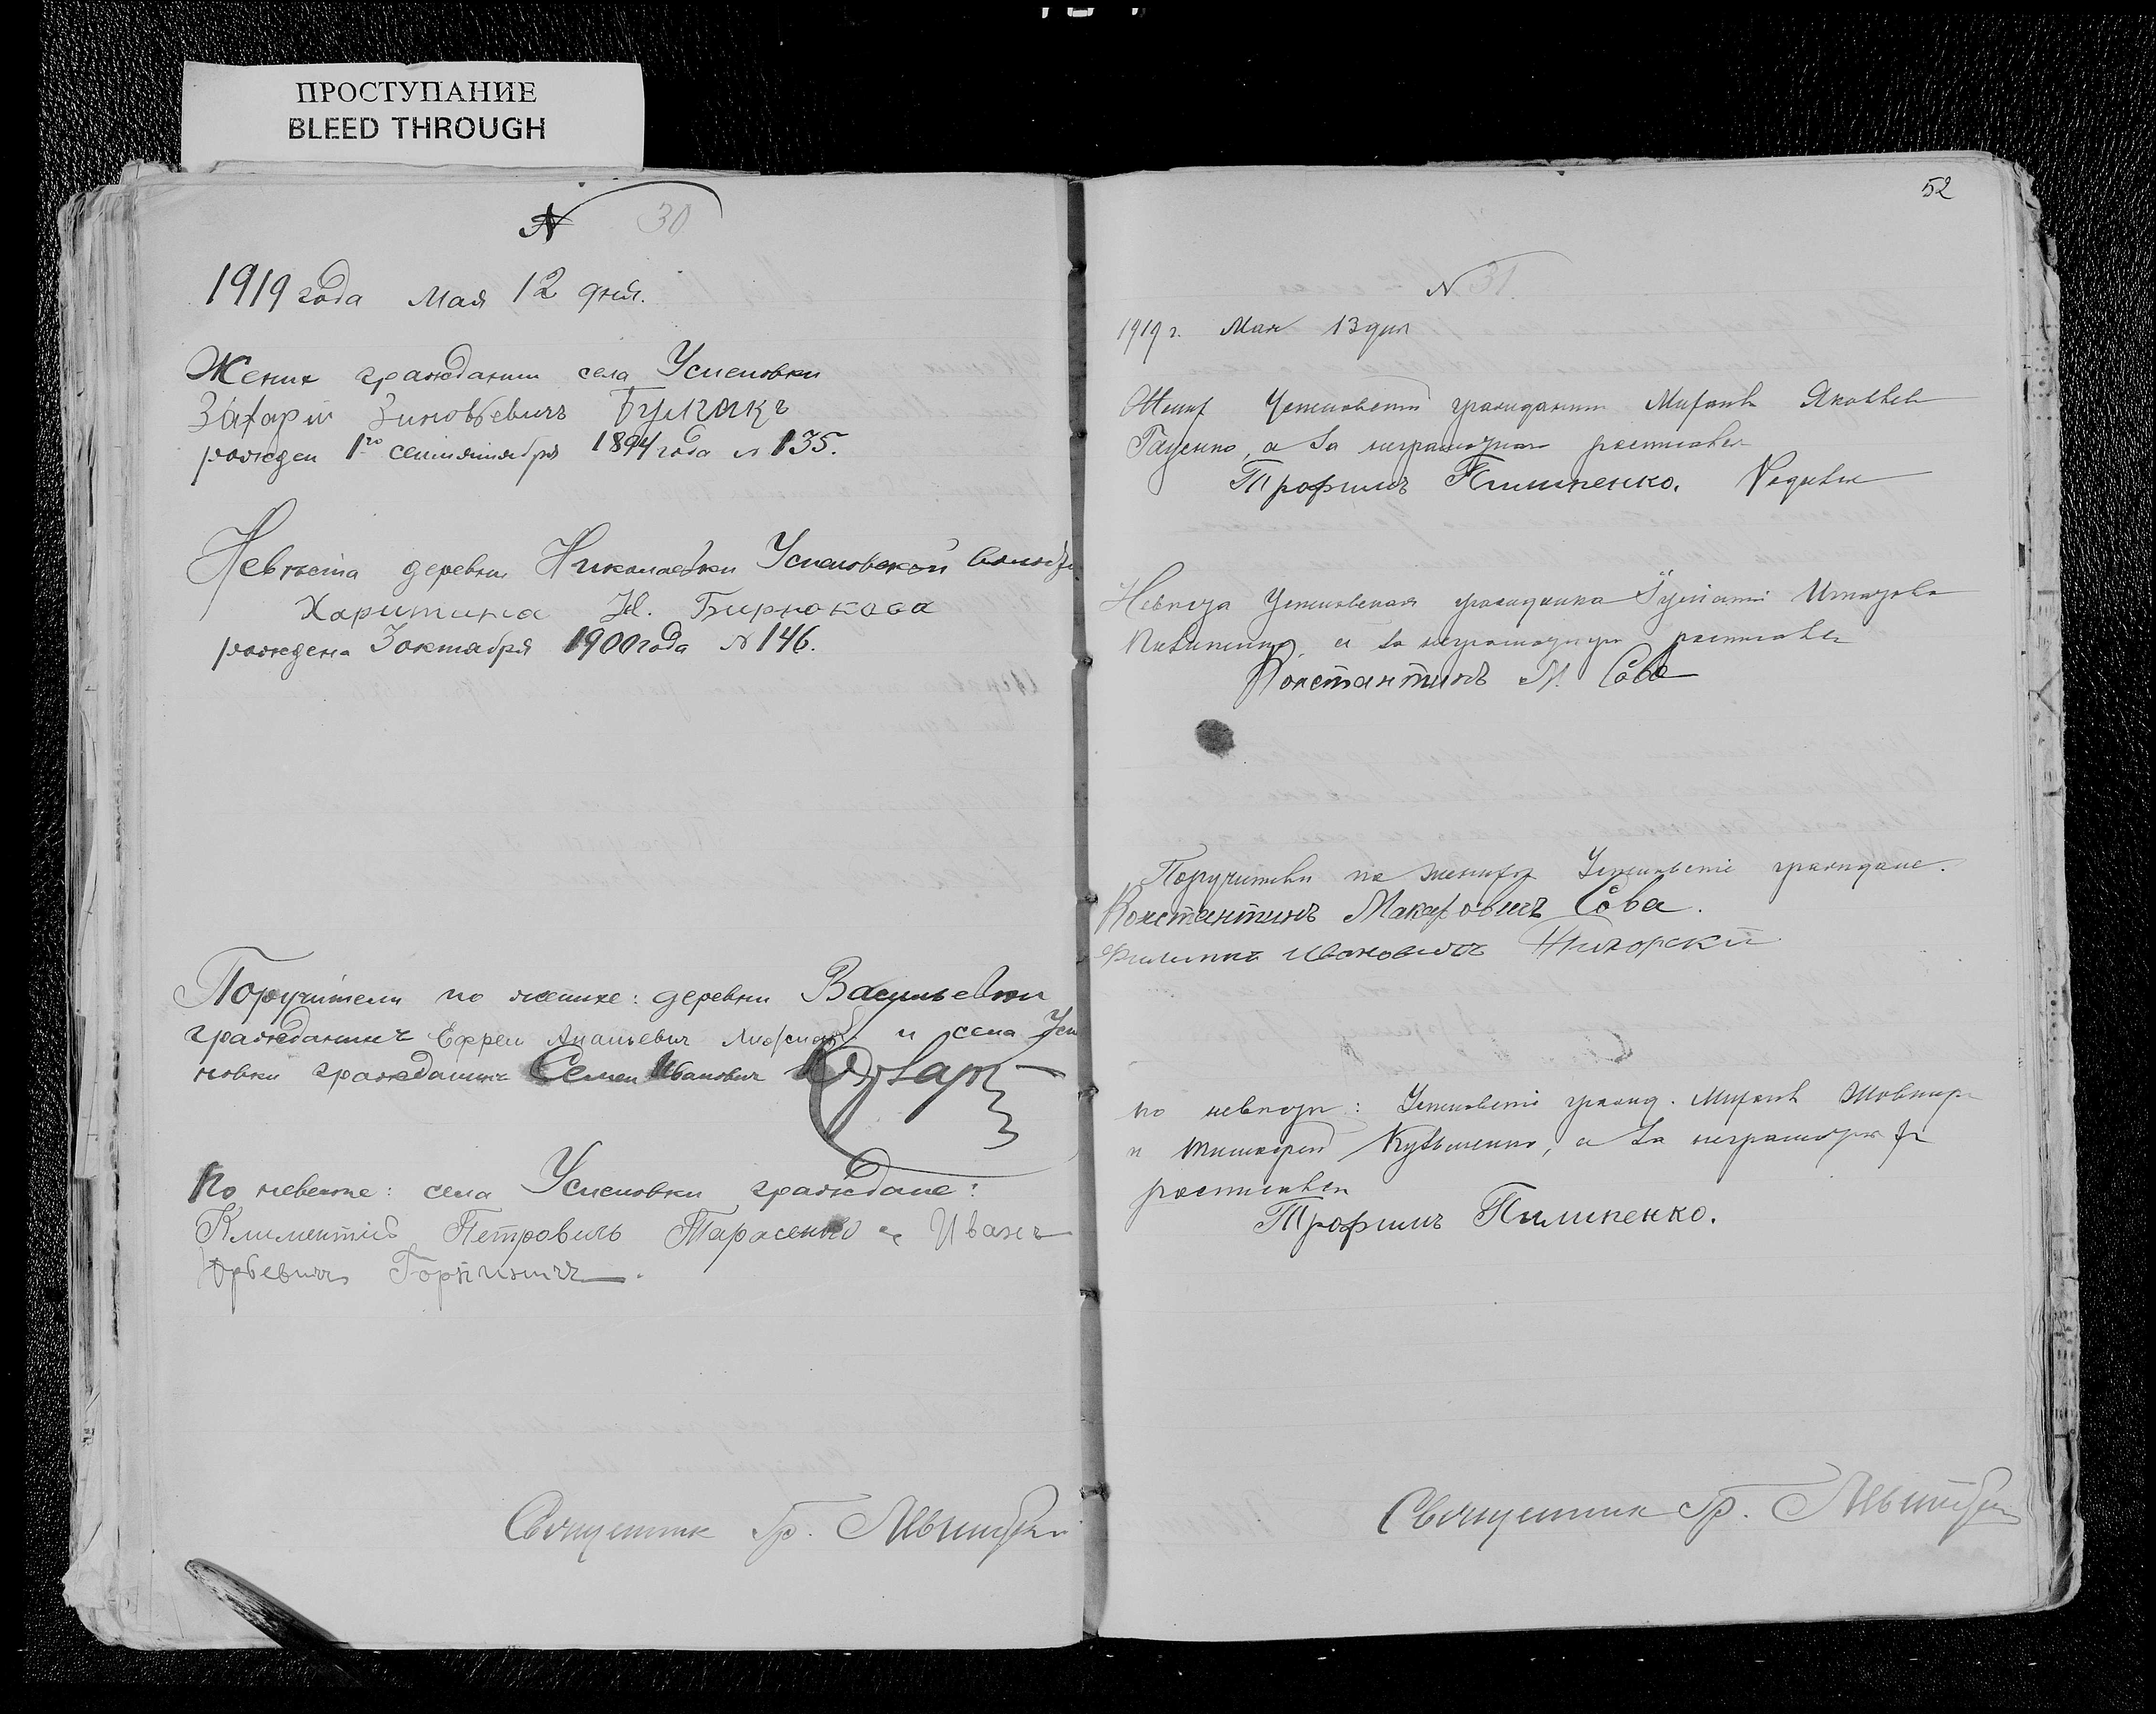 ПРОСТУПАНИЕ
BLEED THROUGH
N 30
1919 года Мая 12 дня.
Жених гражданин села Успеновки
Захарий Зиновьевичъ
рожден 1го сентября 1894 года N 135.
Невеста деревни Николаевки Успеновской волости
Харитина Н. Бирюкова
рождена 3 октября 1900 года N 146.
Поручители по женихе: деревни Васильевки
гражданинъ Ефрем Ананьевич и села Успе
новки гражданинъ Семен Иванович
По невесте: села Успеновки граждане:
Климентий Петровичъ Тарасенко и Иванъ
Юрьевичъ
Священник Гр.
52
N 31.
1919 г. Мая 13 дня
Жених Успеновский гражданин Михаил Яковлев
а за неграмотного росписався
Трофимъ Пилипенко.
Невеста Успеновская гражданка
а за неграмотную росписався
Константинъ М. Сова
Поручители по жениху Успеновские граждане.
Константинъ Макаровичъ Сова.
Филиппъ Ивановичъ
по невесте: Успеновские гражд. Михаил
и Тимофей Кузьменко, а за неграмотных
росписався
Трофимъ Пилипенко.
Священник Гр.